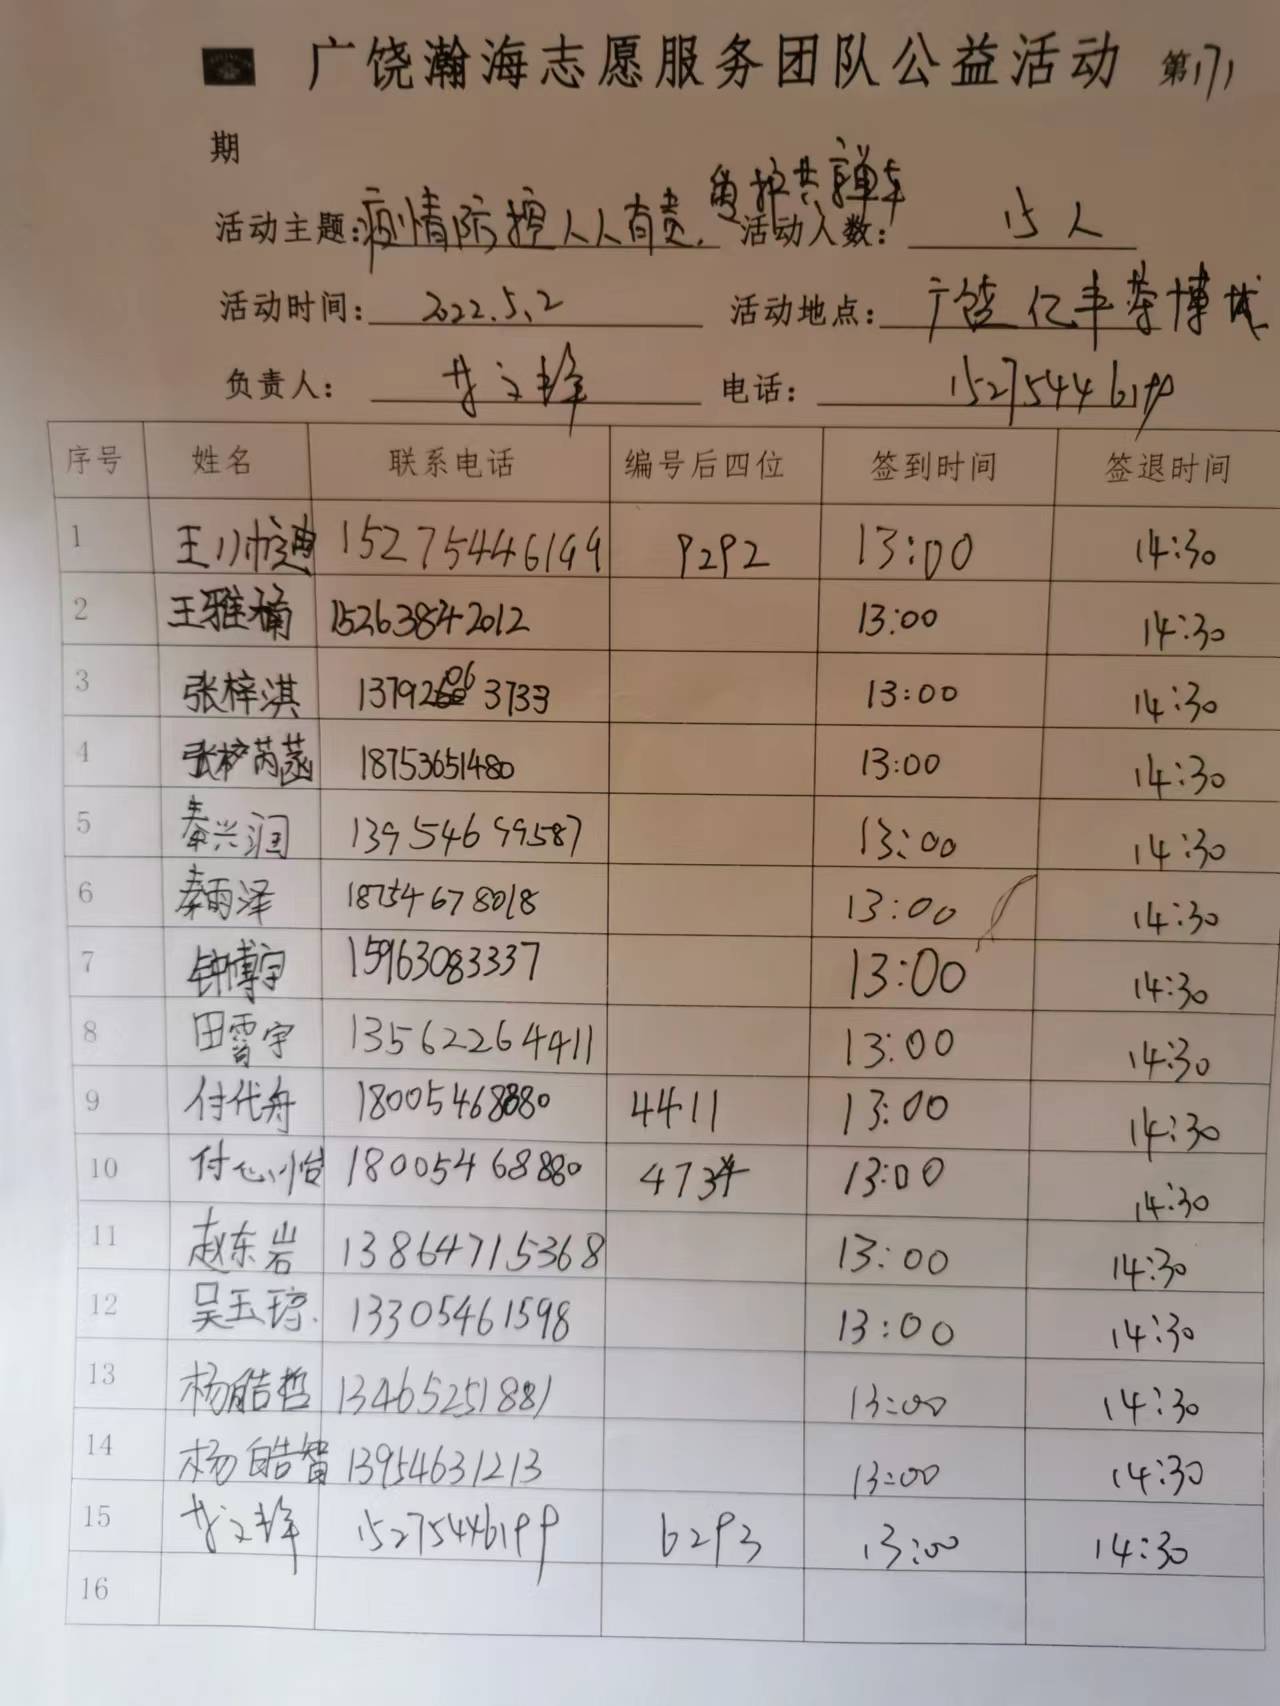 广饶瀚海志愿服务团队公益活动 第171
期
爱护共享单车
活动主题:疫情防控人人有责, 活动人数: 15人
活动时间: 2022.5.2 活动地点: 广饶亿丰荣博城
负责人: 文峰 电话: 15275446199
序号 姓名 联系电话 编号后四位 签到时间 签退时间
1 王小帅迪 15275446199 9292 13:00 14:30
2 王雅楠 15263842012 13:00 14:30
3 张梓淇 13792063733 13:00 14:30
4 张梓芮菡 18753651480 13:00 14:30
5 秦兴润 13954699587 13:00 14:30
6 秦雨泽 18754678018 13:00 14:30
7 钟博宇 15963083337 13:00 14:30
8 田霄宇 13562264411 13:00 14:30
9 付代舟 18005468880 4411 13:00 14:30
10 付心怡 18005468880 4734 13:00 14:30
11 赵东岩 13864715368 13:00 14:30
12 吴玉琼 13305461598 13:00 14:30
13 杨皓哲 13465251881 13:00 14:30
14 杨皓智 13954631213 13:00 14:30
15 文峰 15275446199 6293 13:00 14:30
16